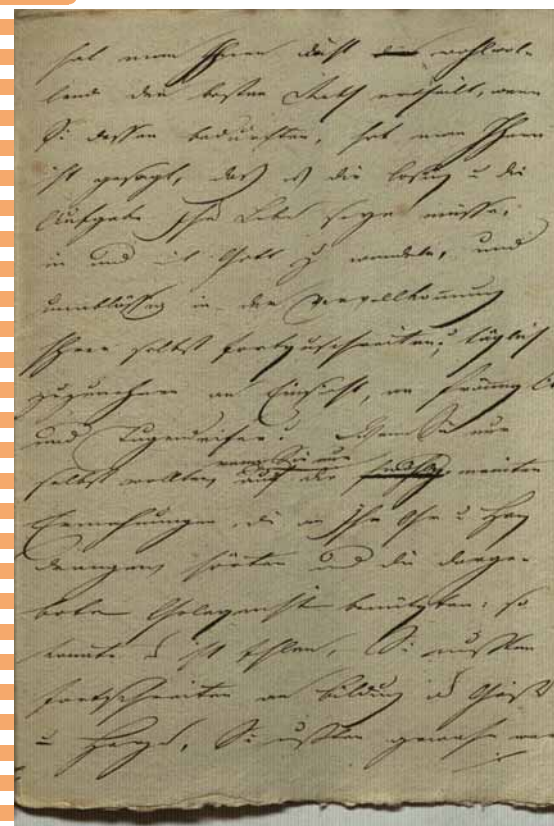 hat man Ihnen nicht die wohlwol-
lende den besten Rath ertheilt, wenn
Sie dessen bedurften, hat man Ihnen
nicht gesagt, daß es die Losung u die
Aufgabe Ihr Leben seyn müsse,
in und mit Gott zu wandeln, und
unabläßig in der Vervollkommnung
Ihrer selbst fortzuschreiten, täglich
zuzunehmen an Einsicht, an
und Tugendeifer? Wenn Sie nur
selbst wollten, wenn Sie nur
auf die meinten
Ermahnungen, die an Ihr Ohr u Herz
drangen, hörten und die darge-
botene Gelegenheit benützten; so
konnte es nicht fehlen, Sie mußten
fortschreiten an Bildung des Geistes
u Herzens, Sie mußten